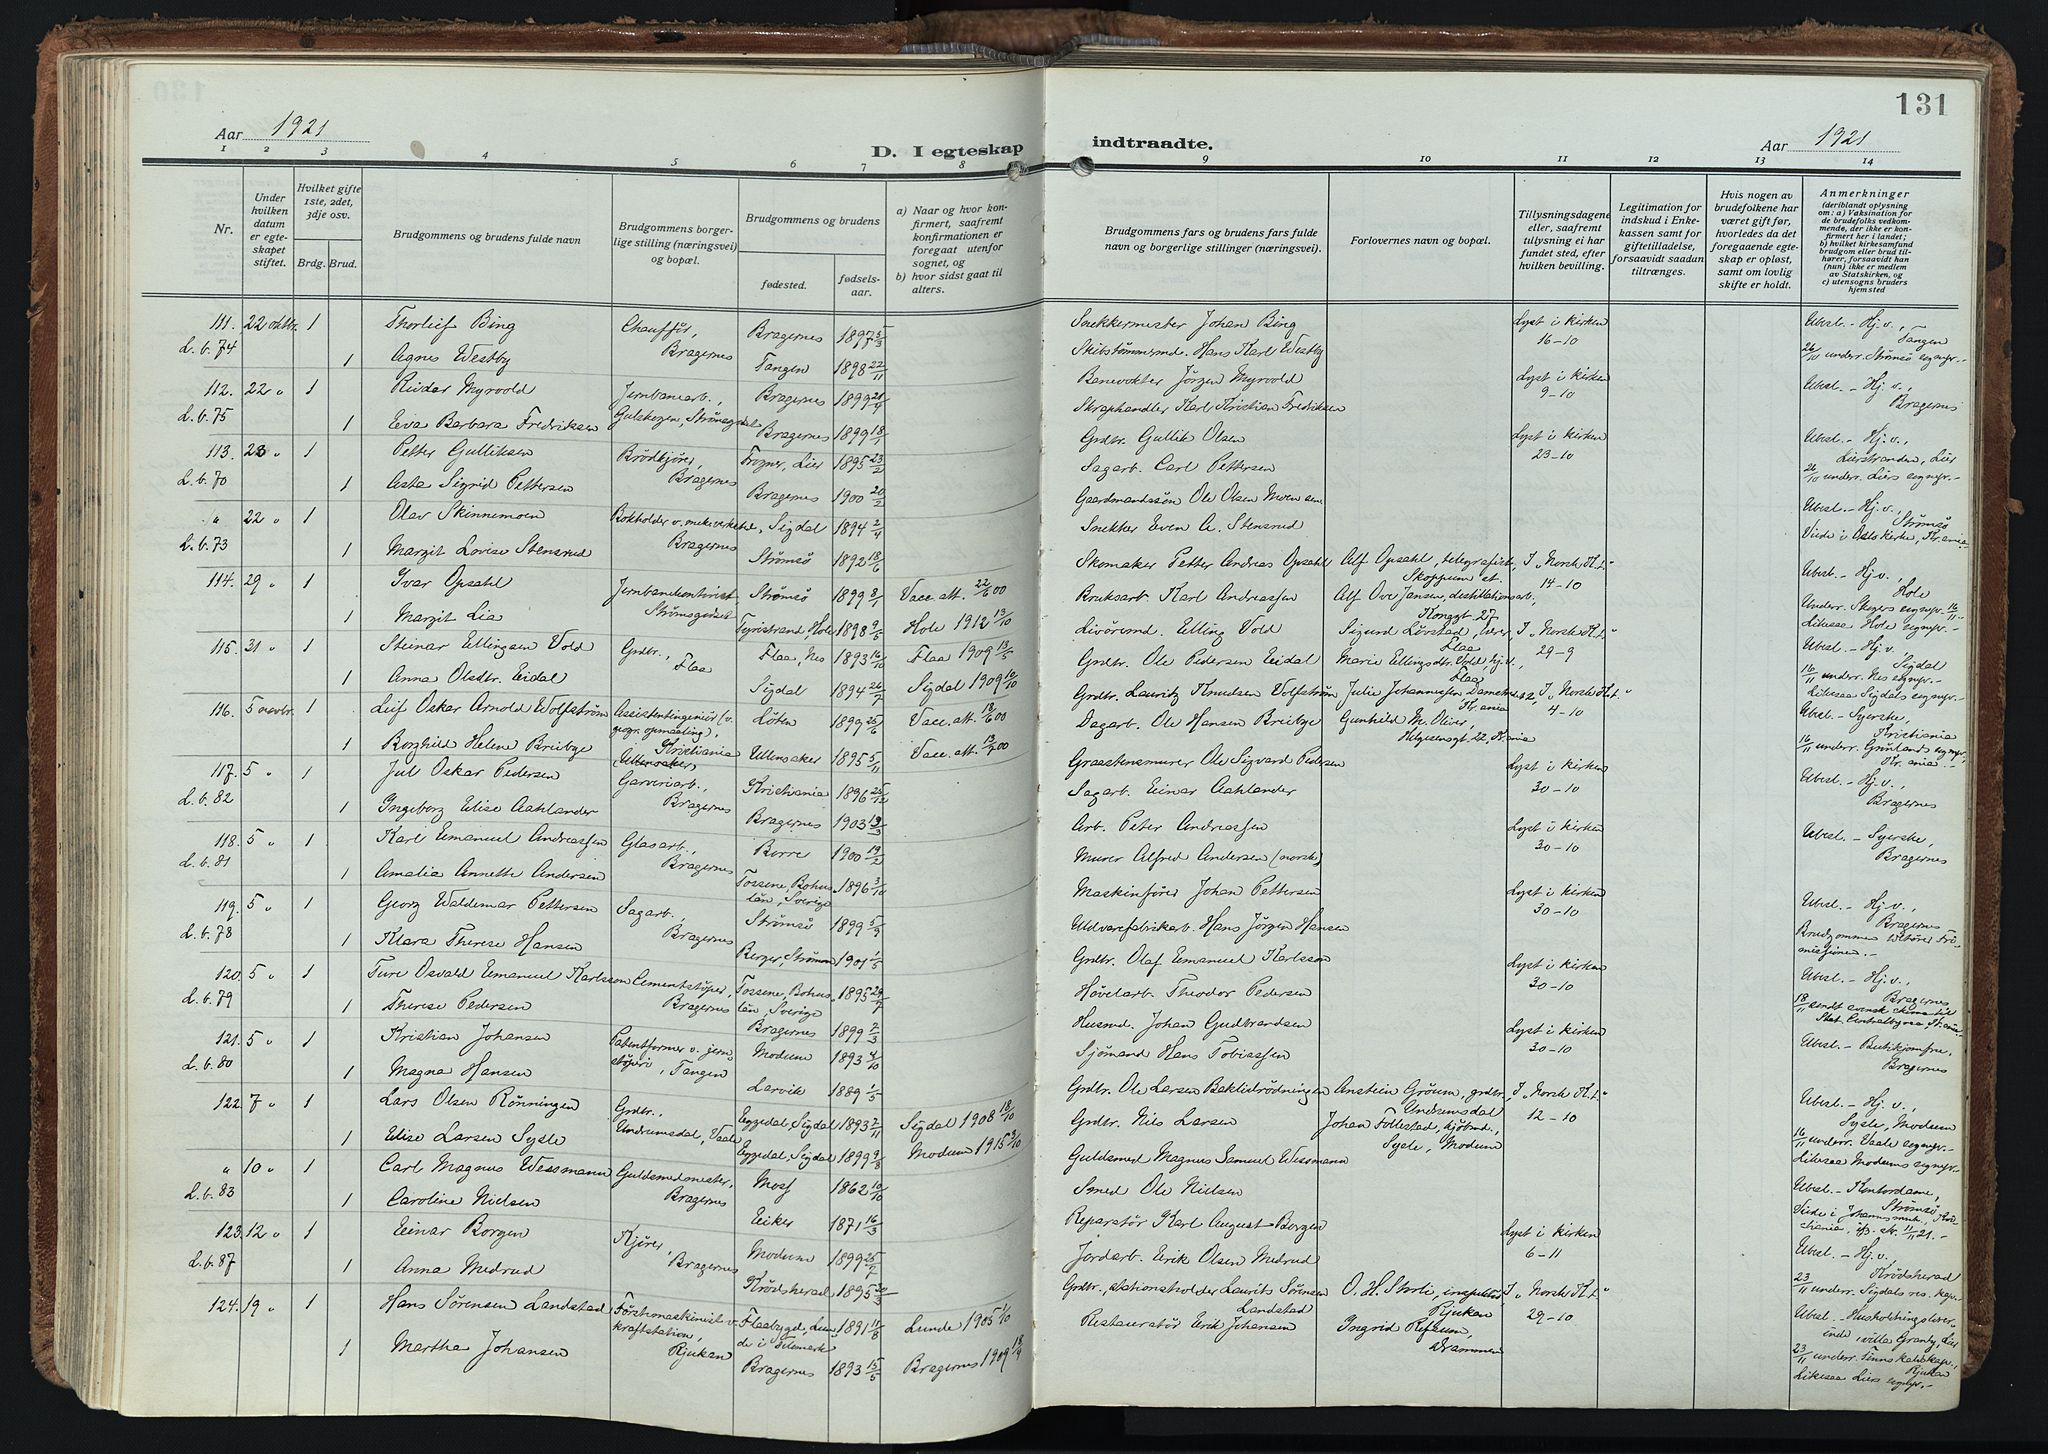 131
Aar 1921
D. I egteskap indtraadte.
Aar 1921
1 2 3 4 5 6 7 8 9 10 11 12 13 14
Nr.
Under hvilken datum er egteskapet stiftet.
Hvilket gifte 1ste, 2det, 3dje osv.
Brdg. Brud.
Brudgommens og brudens fulde navn
Brudgommens borgerlige stilling (næringsvei) og bopæl.
Brudgommens og brudens
fødested.
fødselsaar.
a) Naar og hvor konfirmert, saafremt konfirmationen er foregaat utenfor sognet, og
b) hvor sidst gaat til alters.
Brudgommens fars og brudens fars fulde navn og borgerlige stillinger (næringsvei).
Forlovernes navn og bopæl.
Tillysningsdagene eller, saafremt tillysning ei har fundet sted, efter hvilken bevilling.
Legitimation for indskud i Enkekassen samt for giftetilladelse, forsaavidt saadan tiltrænges.
Hvis nogen av brudefolkene har været gift før, hvorledes da det foregaaende egteskap er opløst, samt om lovlig skifte er holdt.
Anmerkninger (deriblandt oplysning om: a) Vaksination for de brudefolks vedkommende, der ikke er konfirmert her i landet; b) hvilket kirkesamfund brudgom eller brud tilhører, forsaavidt han (hun) ikke er medlem av Statskirken, og c) utensogns bruders hjemsted
111. 22 oktbr. 1 Thorleif Bing Chauffør, Bragernes Bragernes 1897 5/3 Snekkermester Johan Bing Lyst i kirken 16-10 Ubesl. - Hj.v., Tangen
L.b. 74 1 Agnes Westby Tangen 1898 22/11 Skibstømmermd. Hans Karl Westby 26/10 underr. Strømsø sognepr.-
112. 22 " 1 Reidar Myrvold Jernbanearb., Bragernes 1899 20/9 Benevokter Jørgen Myrvold Lyst i kirken 9-10 Ubesl. - Hj.v., Bragernes
L.b. 75 1 Eva Barbara Fredriksen Gulskogen, Strømsgodset Bragernes 1899 18/1 Skraphandler Karl Kristian Fredriksen
113. 23 " 1 Petter Gulliksen Brødkjører, Bragernes Frogner, Lier 1895 23/2 Grdbr. Gullik Olsen Lyst i kirken 23-10 Ubesl. - Hj.v., Lierstranden, Lier
L.b. 70 1 Asta Sigrid Pettersen Bragernes 1900 20/2 Sagarb. Carl Pettersen 26/10 underr. Liers sognepr.-
" 22 " 1 Olav Skinnemoen Bokholder v. mek.verksted, Bragernes Sigdal 1894 2/4 Gaardmandssøn Ole Olsen Moen sen. Ubesl. - Hj.v., Strømsø
L.b. 73 1 Margit Lovise Stensrud Strømsø 1892 18/6 Snekker Even A. Stensrud Viede i Oslo kirke, Kr.ania.
114. 29 " 1 Ivar Opsahl Jernbanekontorist Strømsgodset Strømsø 1899 8/1 Vacc. att. 22/6 00 Skomaker Petter Andreas Opsahl Alf Opsahl, telegrafist, Skoppum st. I "Norsk K.t." 14-10 Ubesl. - Hj.v., Hole
1 Margit Lia Tyristrand, Hole 1898 9/5 Hole 1912 13/10 Bruksarb. Karl Andreassen Alf Ove Jansen, destillationsarb., Konggt. 27 Underr. Skogers sognepr. 16/11 Likesaa Hole sognepr.-
115. 21 " 1 Steinar Ellingsen Vold Grdbr., Flaa Flaa, Nes 1893 16/10 Flaa 1909 13/5 Livøremd. Elling Vold Sigurd Lørstad, lærer Flaa I "Norsk K.t." 29-9 Ubesl. - Hj.v. Sigdal
1 Anna Olsdtr. Eidal Sigdal 1894 26/7 Sigdal 1909 10/10 Grdbr. Ole Pedersen Eidal Marie Ellingsdtr. Vold, hj.v., Flaa 16/11 underr. Nes sognepr.- Likesaa Sigdals sognepr.-
116. 5 novbr. 1 Leif Oskar Arnold Wolfstrøm Assistentingeniør (v. geogr. opmaaling), Kristiania Løten 1899 25/6 Vacc. att. 18/6 00 Grdbr. Lauritz Knudsen Wolfstrøm Julie Johannessen, Kr.ania I "Norsk K.t." 4-10 Ubesl. - Syerske, Kristiania
1 Borghild Helene Breibye (Ullensaker) Ullensaker 1895 5/11 Vacc. att. 13/7 00 Dagarb. Ole Hansen Breibye Gunhild M. Oliver, Helgesensgt. 22, Kr.ania 16/11 underr. Grønlands sognepr., Kr.ania.-
117. 5 " 1 Jul Oskar Pedersen Garveriarb., Bragernes Kristiania 1896 25/12 Graastensmurer Ole Sigvard Pedersen Lyst i kirken 30-10 Ubesl. - Hj.v., Bragernes
L.b. 82 1 Ingeborg Elise Aahlander Bragernes 1903 19/3 Sagarb. Einar Aahlander
118. 5 " 1 Karl Emanuel Andreassen Glasarb., Bragernes Borre 1900 19/2 Arb. Peter Andreassen Lyst i kirken 30-10 Ubesl. - Syerske, Bragernes
L.b. 81 1 Amalia Annette Andersen Tossene, Bohuslän, Sverige 1896 3/10 Murer Alfred Andersen (norsk)
119. 5 " 1 Georg Valdemar Pettersen Sagarb., Bragernes Strømsø 1899 5/9 Maskinfører Johan Pettersen Lyst i kirken 30-10 Ubesl. - Hj.v., Bragernes
L.b. 78 1 Klara Therese Hansen Berger, Strømm 1901 1/5 Uldvarefabrikarb. Hans Jørgen Hansen Brudgommen tilhører Frimissionen.-
120. 5 " 1 Ture Osvald Emanuel Karlsson Cementstøper, Bragernes Tossene, Bohuslän, Sverige 1895 29/7 Grdbr. Olaf Emanuel Karlsson Lyst i kirken 30-10 Ubesl. - Hj.v., Bragernes
L.b. 79 1 Therese Pedersen Bragernes 1899 2/3 Høvelarb. Theodor Pedersen 18/11 sendt svensk skema til Stat. Centralbyraa Kr.ania
121. 5 " 1 Kristian Johansen Patentformer v. jernstøperi, Tangen Modum 1893 4/10 Husmd. Johan Gudbrandsen Lyst i kirken 30-10 Ubesl. - Butikjomfru, Bragernes
L.b. 80 1 Magna Hansen Larvik 1889 1/5 Sjømand Hans Tobiassen
122. 7 " 1 Lars Olsen Rønningen Grdbr., Undrumsdal, Vaale Eggedal, Sigdal 1893 2/11 Sigdal 1908 18/10 Grdbr. Ole Larsen Baklidrødningen Anstein Grøum, grdbr., Undrumsdal I "Norsk K.t." 12-10 Ubesl. - Hj.v., Sysle, Modum
1 Elise Larsen Sysle Eggedal, Sigdal 1899 9/8 Modum 1915 3/10 Grdbr. Nils Larsen Johan Follestad, kjøbmd., Sysle, Modum 16/11 underr. Vaale sognepr.- Likesaa Modums sognepr.-
" 10 " 1 Carl Magnus Wessmann Guldsmedmester, Bragernes Moss 1862 10/10 Guldsmed Magnus Samuel Wessmann Ubesl. - Kontordame, Strømsø
L.b. 83 1 Caroline Nielsen Eiker 1871 16/3 Smed Ole Nielsen
123. 12 " 1 Einar Borgen Kjører, Bragernes Modum 1899 25/7 Reparatør Karl August Borgen Lyst i kirken 6-11 Ubesl. - Hj.v., Krødsherad
L.b. 87 1 Anna Medrud Krødsherad 1895 20/3 Jordarb. Erik Olsen Medrud 23/11 underr. Sigdals res. kap.-
124. 19 " 1 Hans Sørensen Landstad Førstemaskinist v. kraftstation, Rjukan Flaabygd, Lunde i Telemark 1891 11/8 Lunde 1905 1/10 Grdbr., stationsholder Laurits Sørensen Landstad O. H. Storli, inspektør, Rjukan I "Norsk K.t." 29-10 Ubesl. - Husholdningslærerinde, villa Granly, Lier
1 Martha Johansen Bragernes 1893 15/5 Bragernes 1909 18/9 Restauratør Erik Johansen Ingrid Refsum, Drammen 23/11 underr. Tinns kaldskap., Rjukan Likesaa Liers sognepr.-